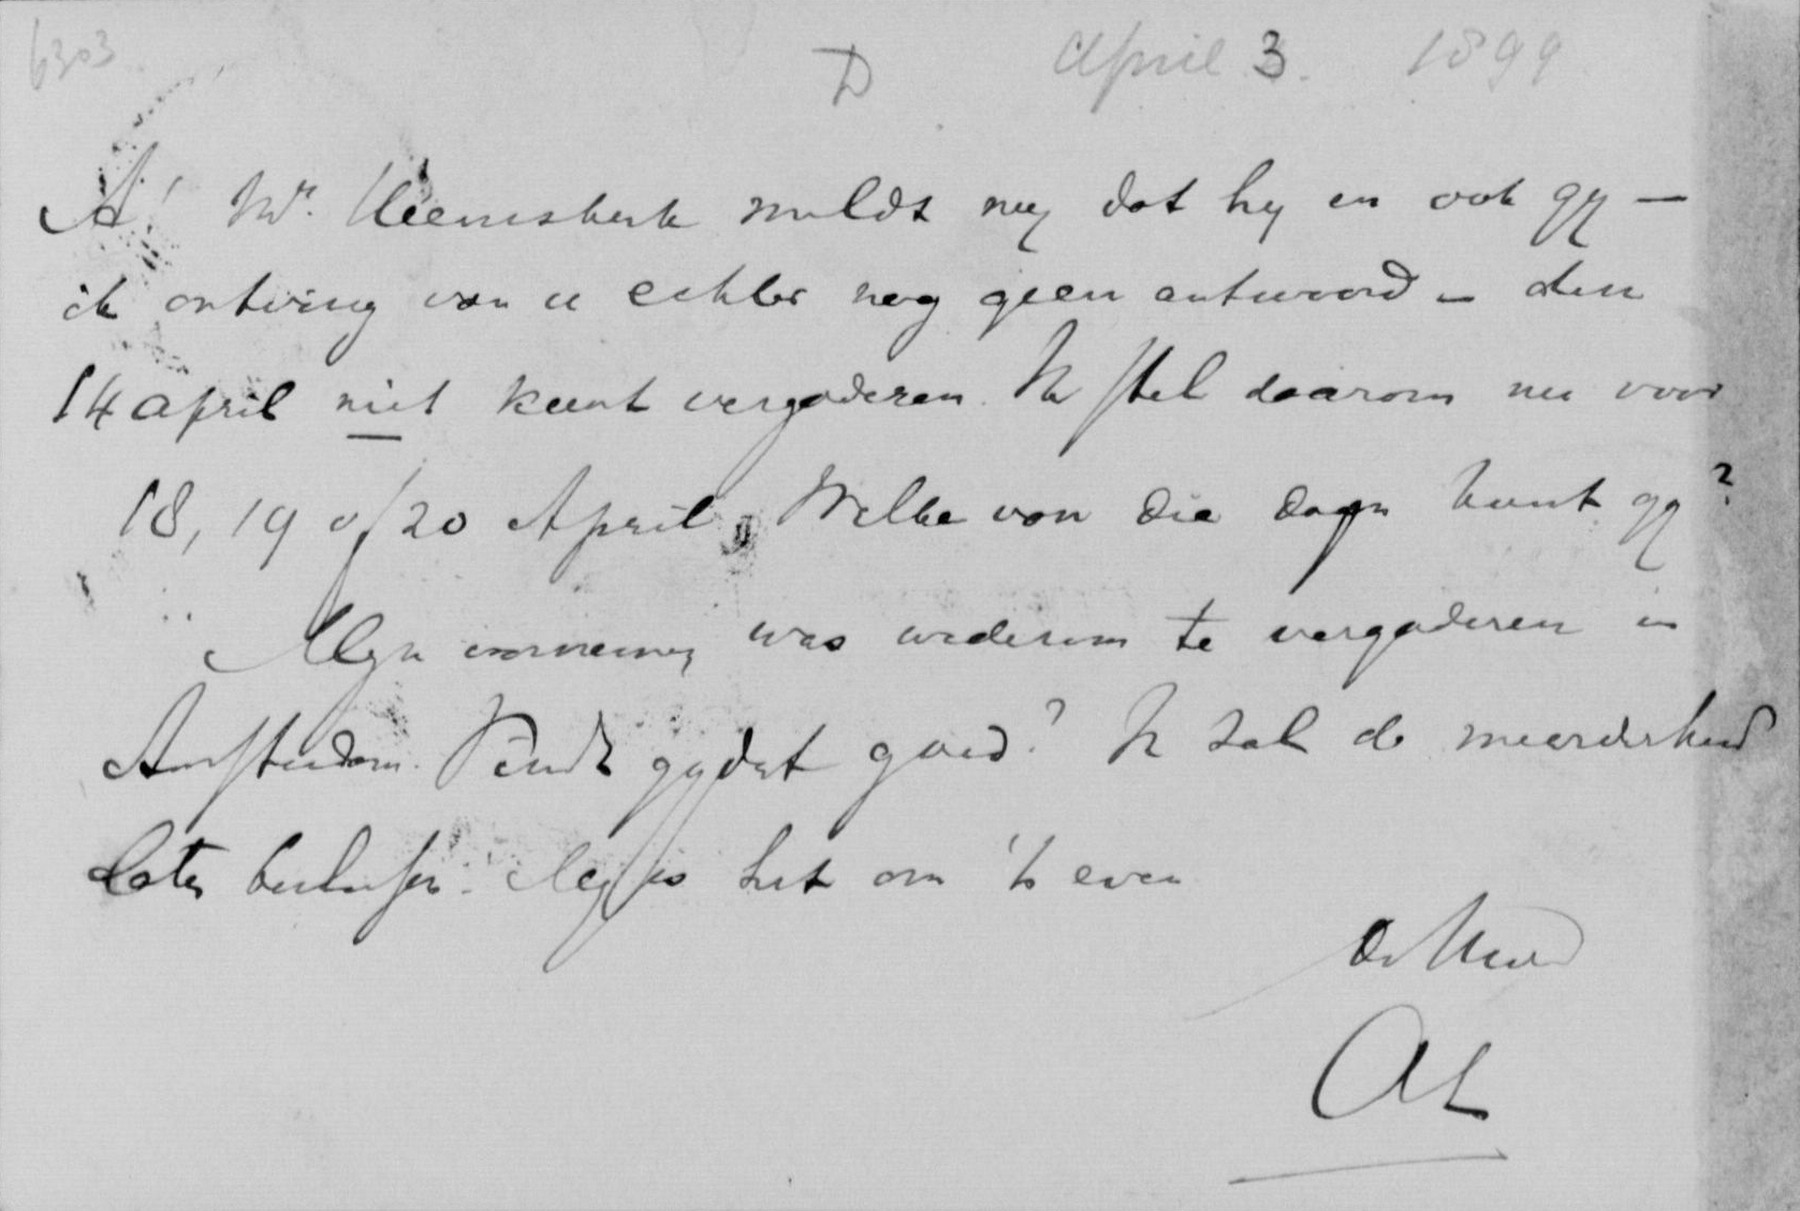 6303 D April 3. 1899
A! Mr. Heemskerk meldt mij dat hij en ook gij —
ik ontving van u echter nog geen antwoord — den
14 april niet kunt vergaderen. Ik stel daarom nu voor
18, 19 of 20 April. Welke van die dagen kunt gij?
Mijn voornemen was wederom te vergaderen in
Amsterdam. Vindt gij dat goed? Ik zal de meerderheid
laten beslissen. Mij is het om 't even